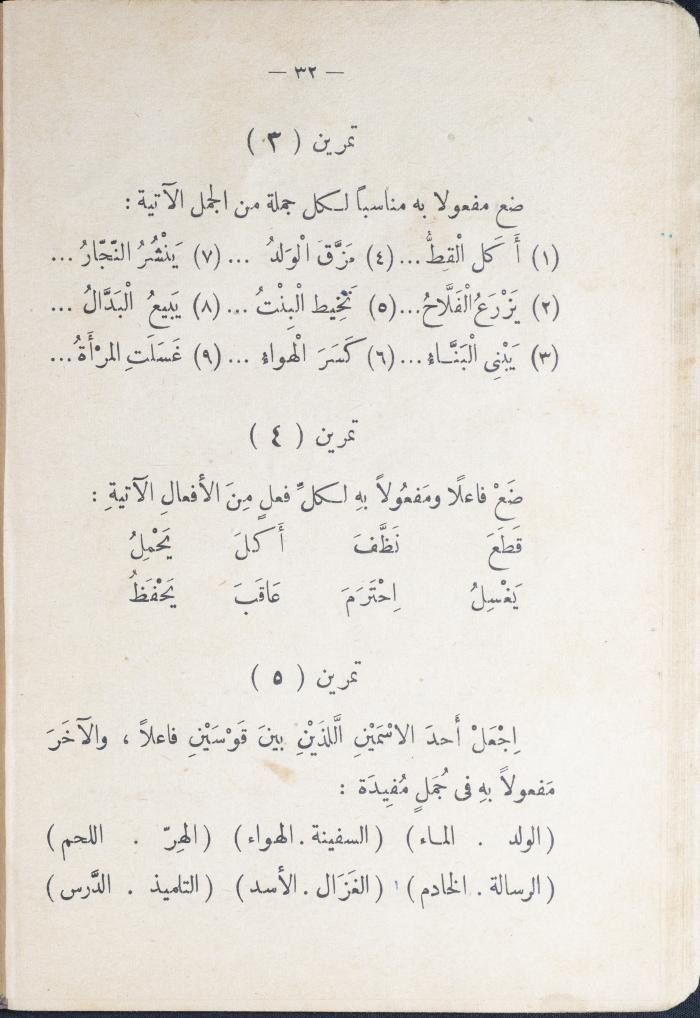 — ٣٢ —
تمرين ( ٣ )
ضع مفعولا به مناسباً لكل جملة من الجمل الآتية :
(١) أَكَل الْقِطُّ... (٤) مَزَّقَ الْوَلَدُ ... (٧) يَنْشُرُ النَّجّارُ ...
(٢) يَزْرَعُ الْفَلَّاحُ... (٥) تَخِيط الْبِنْتُ ... (٨) يَبِيعُ الْبَدَّالُ ...
(٣) يَبْنِى الْبَنَّاء... (٦) كَسَرَ الْهواء ... (٩) غَسَلَتِ المرْأَةُ...
تمرين ( ٤ )
ضَعْ فاعلًا ومَفعُولاً بهِ لكلِّ فعلٍ مِنَ الأفعالِ الآتيةِ :
قَطَعَ نَظَّفَ أَكَلَ يَحْمِلُ
يَغْسِلُ اِحْتَرَمَ عَاقَبَ يَحْفَظُ
تمرين ( ٥ )
اِجْعَلْ أَحدَ الاسْمَيْنِ الَّلذَيْنِ بينَ قَوْسَيْنِ فاعلاً ، والآخَرَ
مَفعولاً بهِ فى جُمَلٍ مُفِيدَة :
(الولد . الماء) (السفينة . الهواء) (الهِرّ . اللحم)
(الرسالة . الخادم) (الغَزَال . الأسد) (التلميذ . الدَّرس)